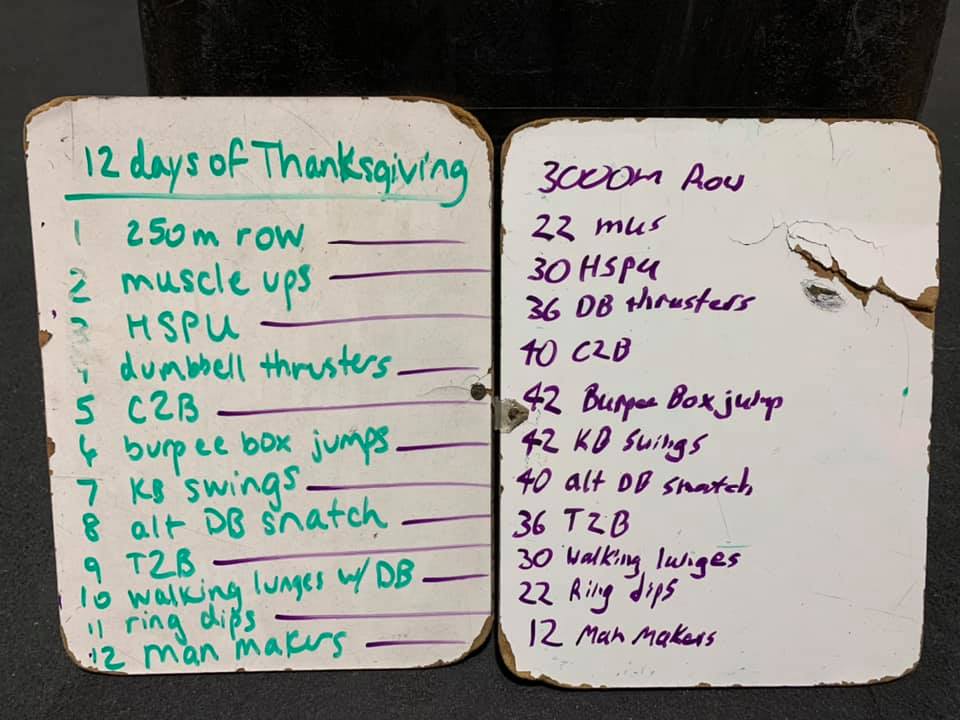 12 days of Thanksgiving
1 250m row
2 muscle ups
3 HSPU
4 dumbbell thrusters
5 C2B
6 burpee box jumps
7 KB swings
8 alt DB snatch
9 T2B
10 walking lunges w/ DB
11 ring dips
12 man makers
3000m Row
22 mus
30 HSPU
36 DB thrusters
40 C2B
42 Burpee Box jump
42 KB swings
40 alt DB snatch
36 T2B
30 Walking lunges
22 Ring dips
12 Man Makers